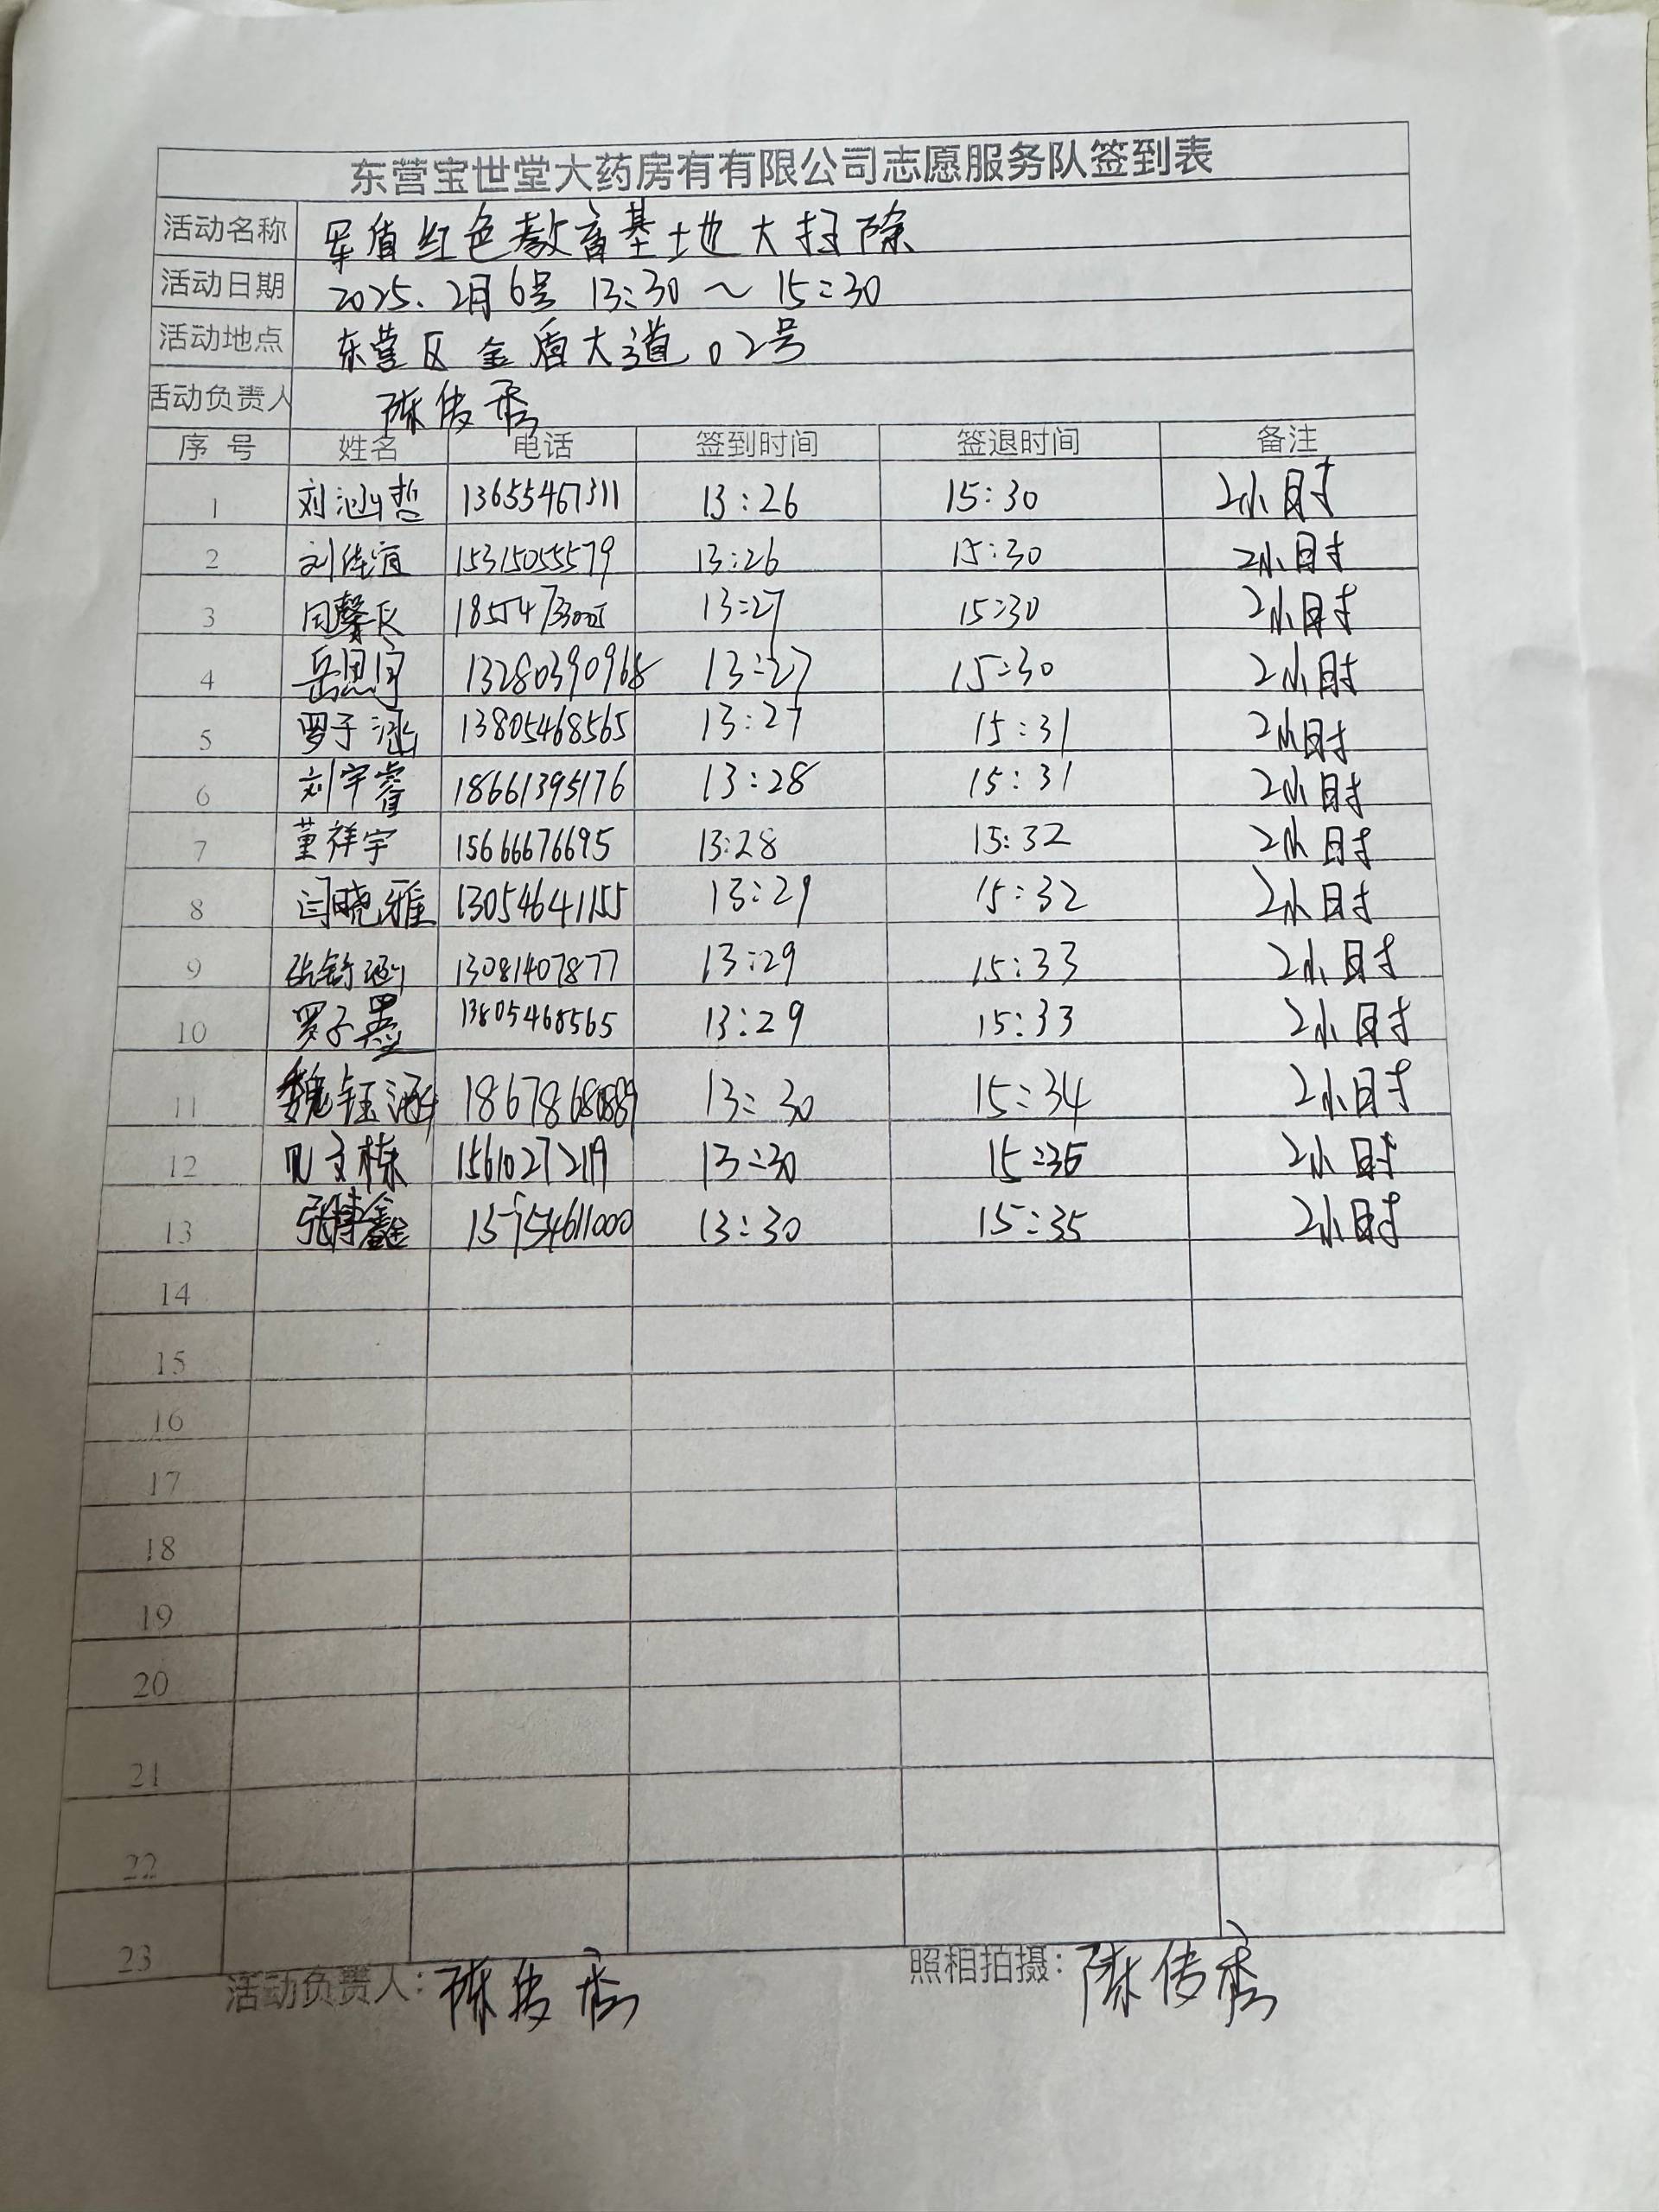 东营宝世堂大药房有有限公司志愿服务队签到表
活动名称 军盾红色教育基地大扫除
活动日期 2025.2月6号 13:30～15:30
活动地点 东营区金盾大道02号
活动负责人 陈传秀
序号 姓名 电话 签到时间 签退时间 备注
1 刘涵哲 13655467311 13:26 15:30 2小时
2 刘佳宜 15315055579 13:26 15:30 2小时
3 13:27 15:30 2小时
4 13280390968 13:27 15:30 2小时
5 罗子涵 13805468565 13:27 15:31 2小时
6 刘宇睿 18661395176 13:28 15:31 2小时
7 董祥宇 15666676695 13:28 15:32 2小时
8 闫晓雅 13054641155 13:29 15:32 2小时
9 张舒涵 13081407877 13:29 15:33 2小时
10 罗子墨 13805468565 13:29 15:33 2小时
11 魏钰涵 13:30 15:34 2小时
12 15610272119 13:30 15:35 2小时
13 张博鑫 13:30 15:35 2小时
14
15
16
17
18
19
20
21
22
23
活动负责人：陈传秀 照相拍摄：陈传秀